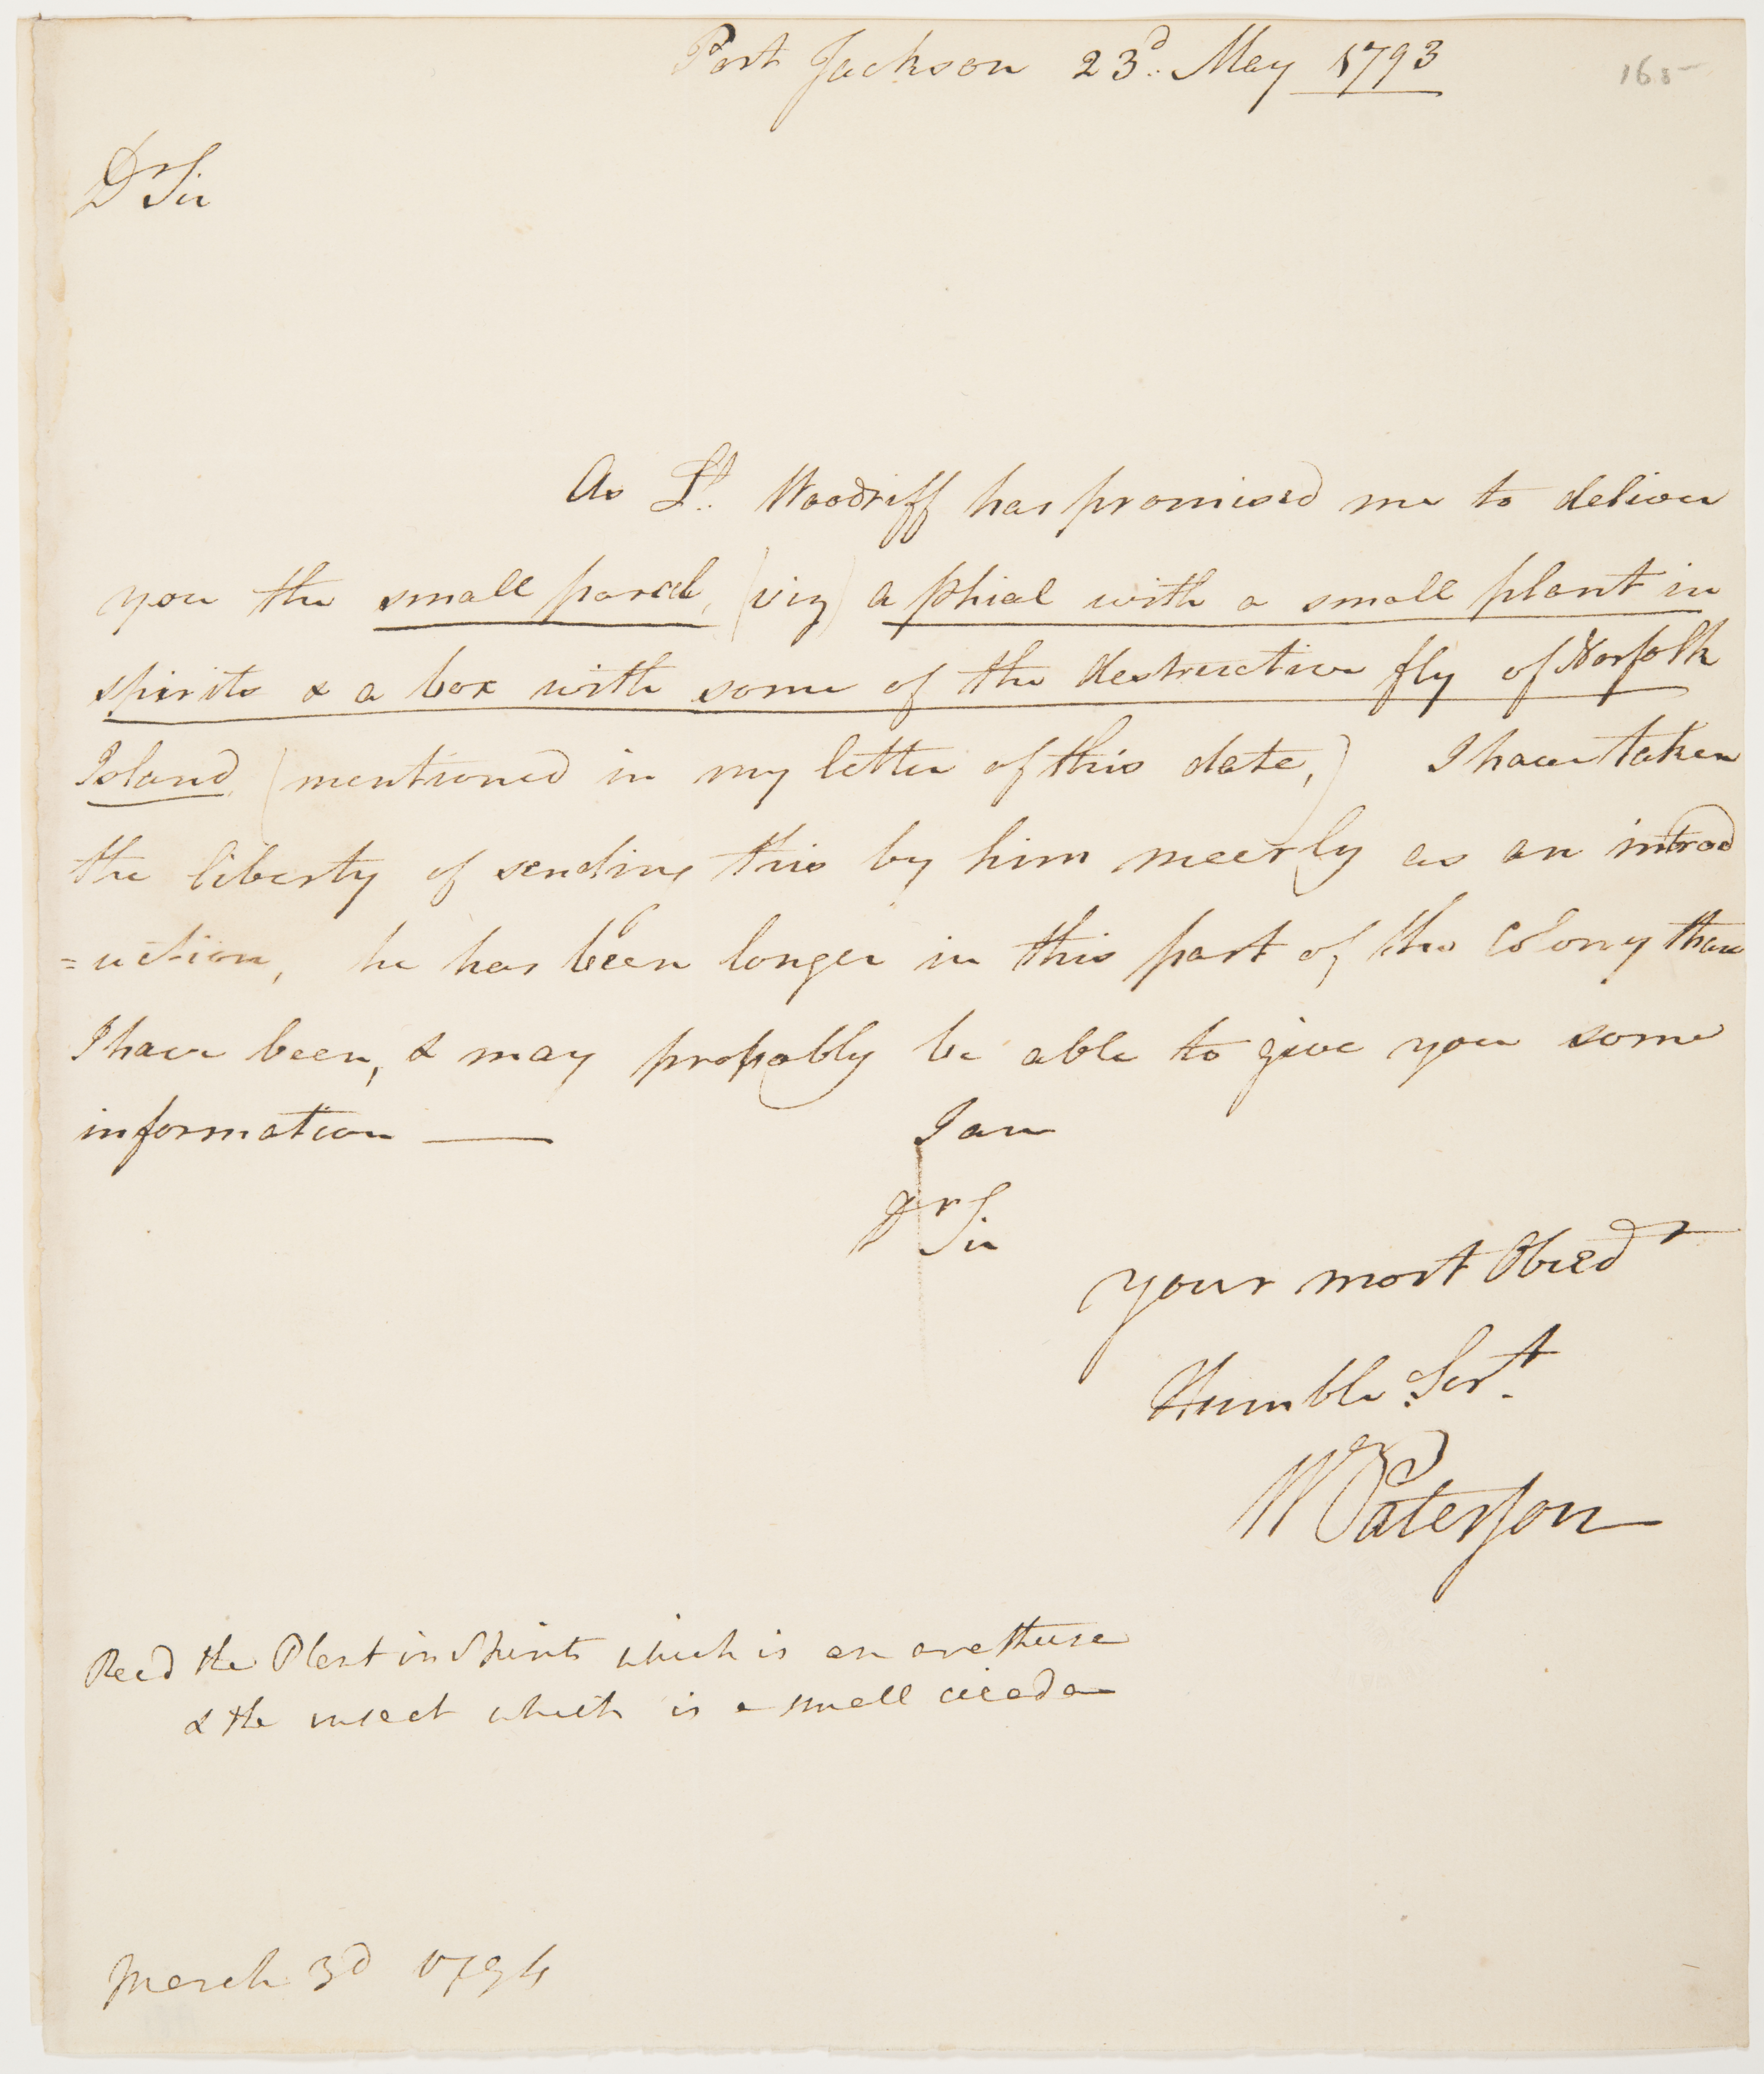 Port Jackson 23d. May 1793
165
Dr Sir
As Lt. Woodriff has promised me to deliver
you the small parcel, (viz) a phial with a small plant in
spirits & a box with some of the destructive fly of Norfolk
Island, (mentioned in my letter of this date,) I have taken
the liberty of sending this by him meerly as an introd
=uction, he has been longer in this part of the Colony than
I have been, & may probably be able to give you some
information —
I am
Dr Sir
your most Obedt
Humble Sert.
W Paterson
Recd the Plant in Spirits which is an arethusa
& the insect which is a small cicada
March 3d 1794